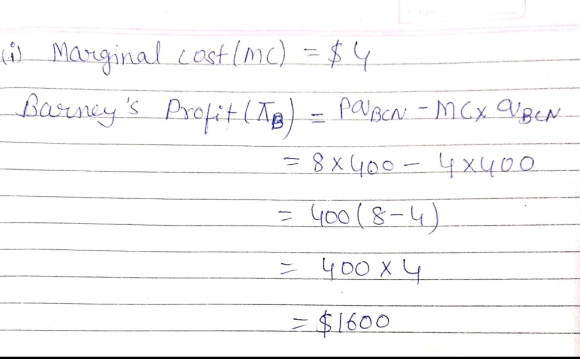 (i) Marginal cost (MC) = $4
Barney's Profit (πB) = PqBCN - MC x qBCN
= 8 x 400 - 4 x 400
= 400 (8-4)
= 400 x 4
= $1600